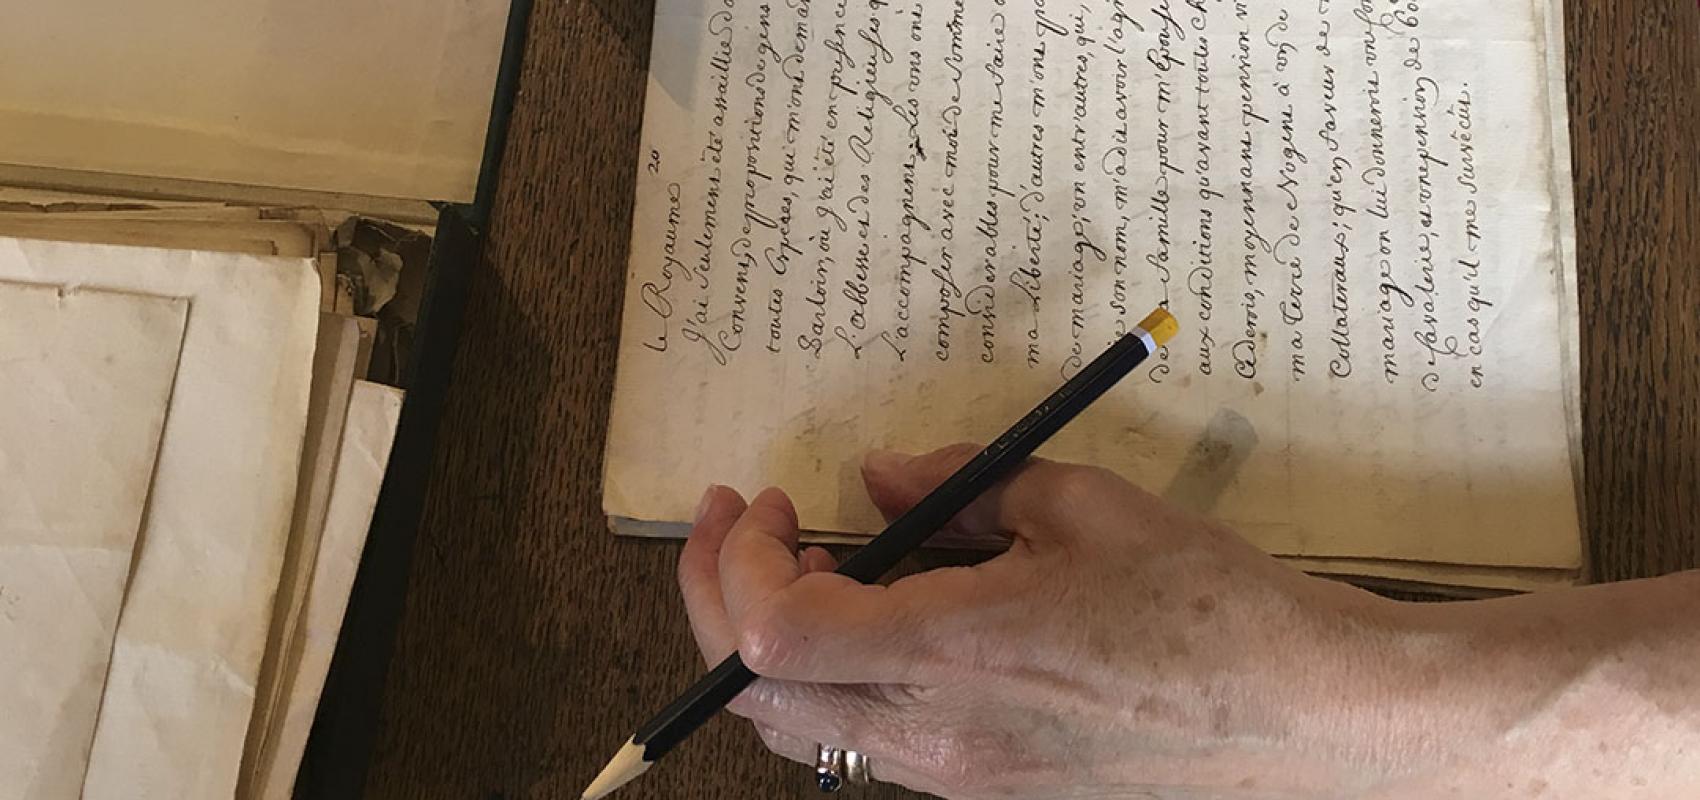 le Royaume 20
J'ai seulement été assaillie d
Convens, de propositions de gens
toutes Espéces, qui m'ont deman
où J'ai été en presence
L'abbesse et des Religieuses q
L'accompagnent; Les uns ont
composer avec moi de Somme
considerables pour me faire
ma Liberté; d'autres m'ont
de mariage; on entr'autres, qui,
son nom, m'a dit avoir l'agr
de famille pour m'Epouse
aux conditions qu'avant toute ch
Cederois, moyennant pension vi
ma Terre de Nogent à un de
Collateraux; qu'en faveur de
mariage on lui donneroit une
de Cavalerie, et une pension de
en cas qu'il me survécût.